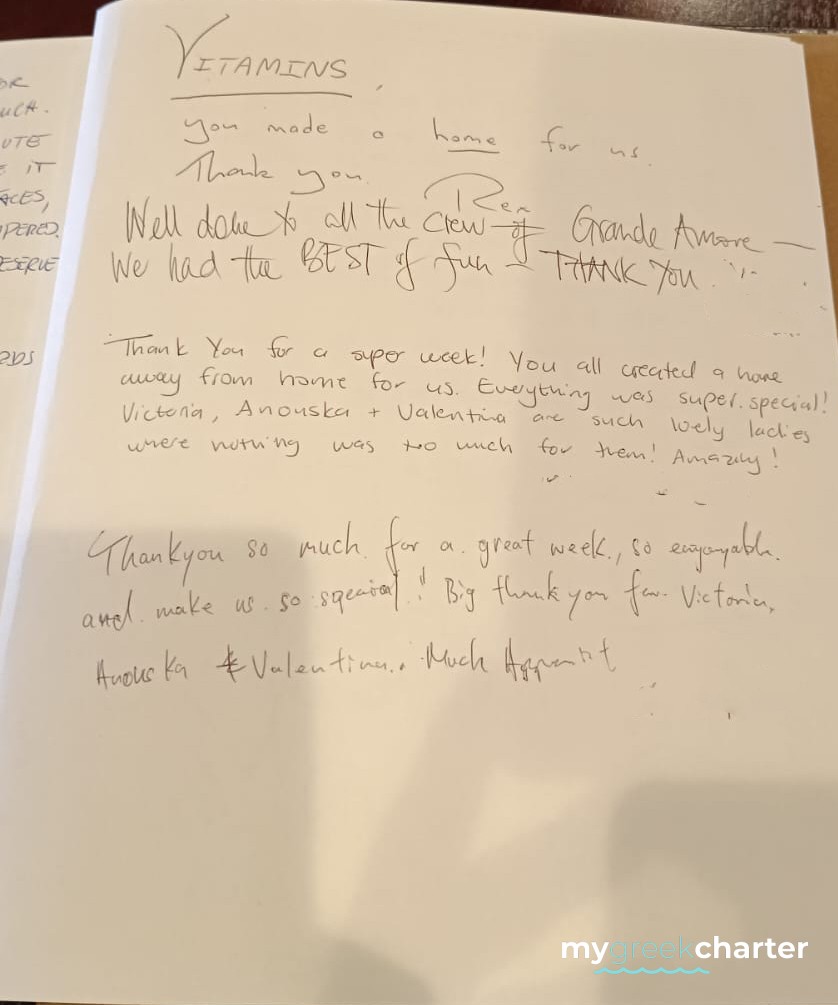 OR
UTE
E IT
ACES,
PERED.
ESERVE
VITAMINS
you made a home for us.
Thank you.
Well done to all the crew of Grande Amore —
We had the BEST of fun – THANK YOU
Thank You for a super week! You all created a home
away from home for us. Everything was super special!
Victoria, Anouska + Valentina are such lovely ladies
where nothing was too much for them! Amazing!
Thankyou so much for a great week, so
and make us so ! Big thank you for Victoria,
Anouska & Valentina.. Much
mygreekcharter